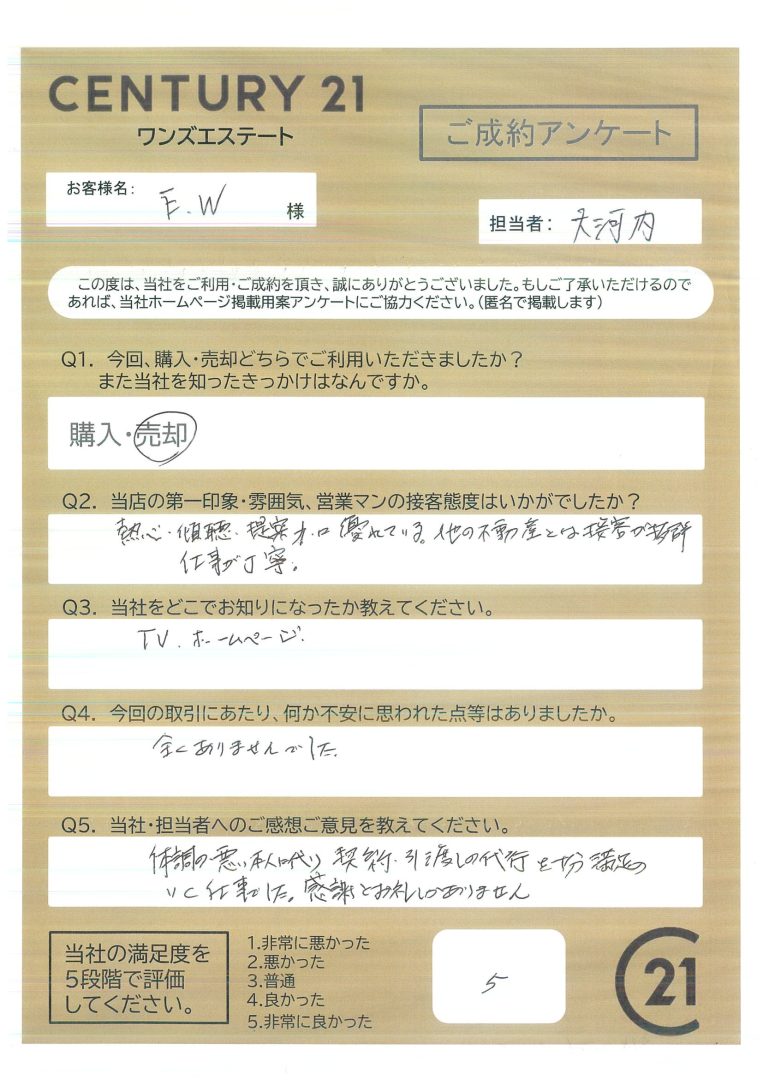 CENTURY 21
ワンズエステート
ご成約アンケート
お客様名:
E.W 様
担当者: 大河内
この度は、当社をご利用・ご成約を頂き、誠にありがとうございました。もしご了承いただけるので
あれば、当社ホームページ掲載用案アンケートにご協力ください。(匿名で掲載します)
Q1. 今回、購入・売却どちらでご利用いただきましたか？
また当社を知ったきっかけはなんですか。
購入・売却
Q2. 当店の第一印象・雰囲気、営業マンの接客態度はいかがでしたか？
熱心・傾聴・提案力・優れている。他の不動産とは接客が抜群
仕事が丁寧。
Q3. 当社をどこでお知りになったか教えてください。
TV、ホームページ.
Q4. 今回の取引にあたり、何か不安に思われた点等はありましたか。
全くありませんでした.
Q5. 当社・担当者へのご感想ご意見を教えてください。
体調の悪い本人に代り 契約・引渡しの代行を十分満足の
いく仕事でした。感謝とお礼しかありません
当社の満足度を
5段階で評価
してください。
1.非常に悪かった
2.悪かった
3.普通
4.良かった
5.非常に良かった
5
21